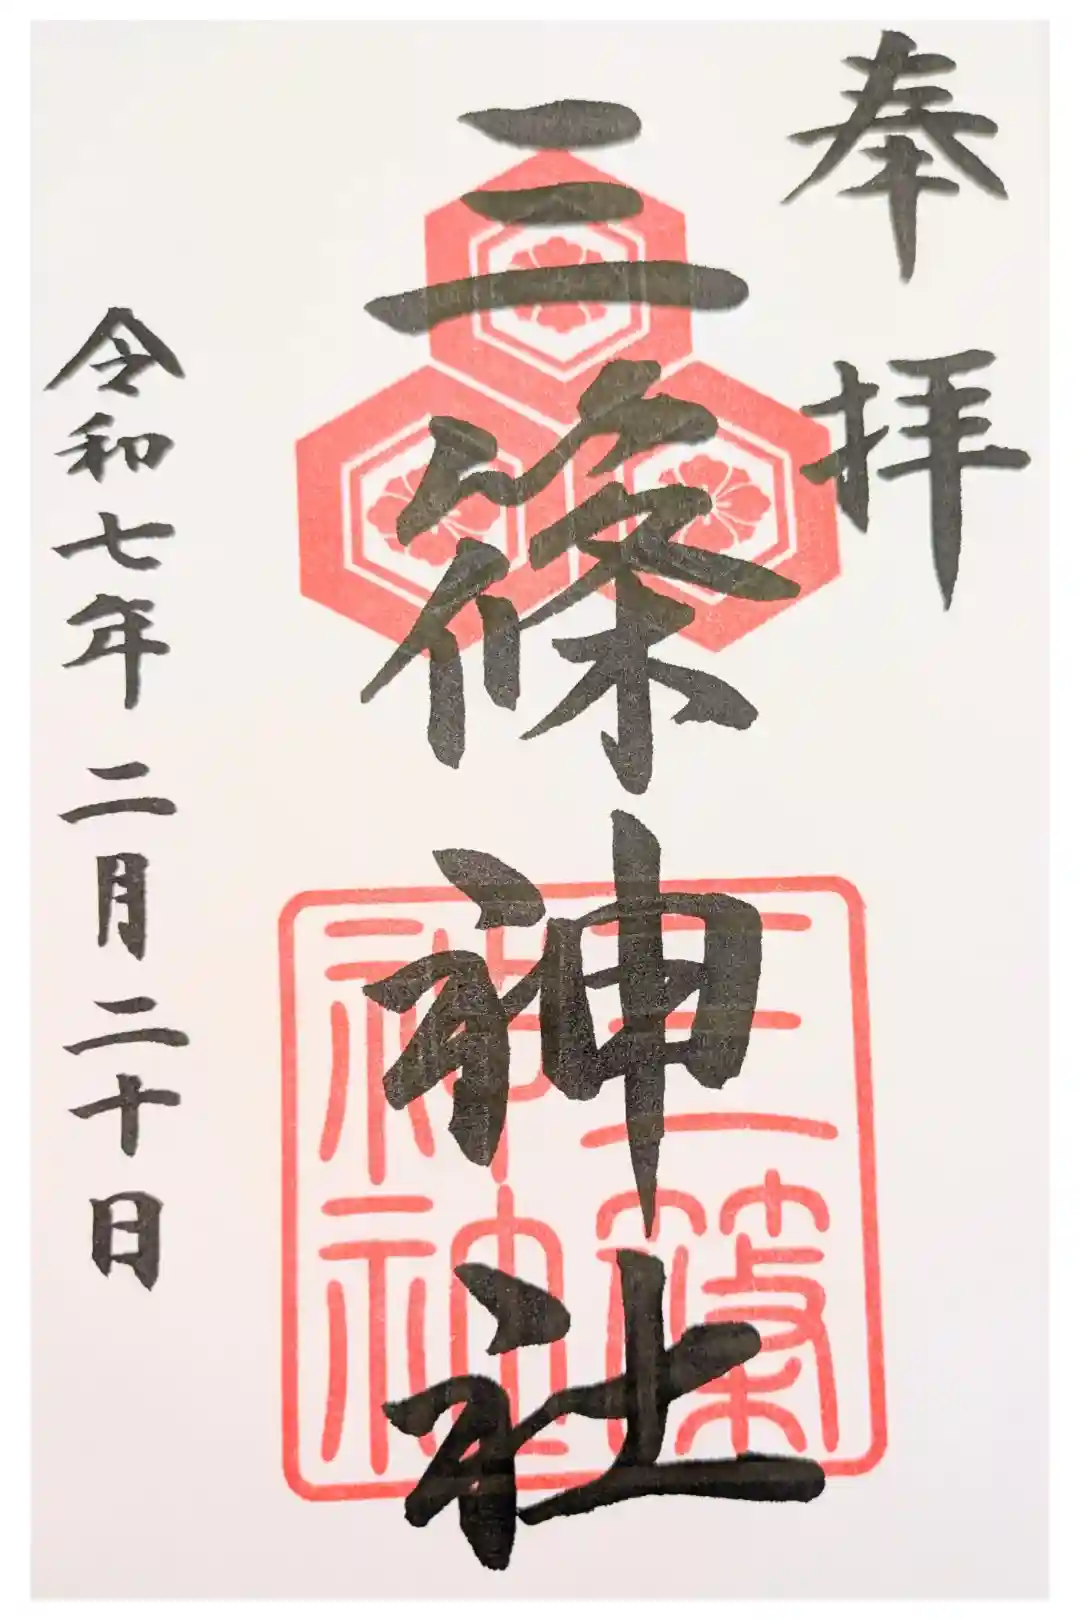 奉拝
三篠神社
三篠
神社
令和七年二月二十日